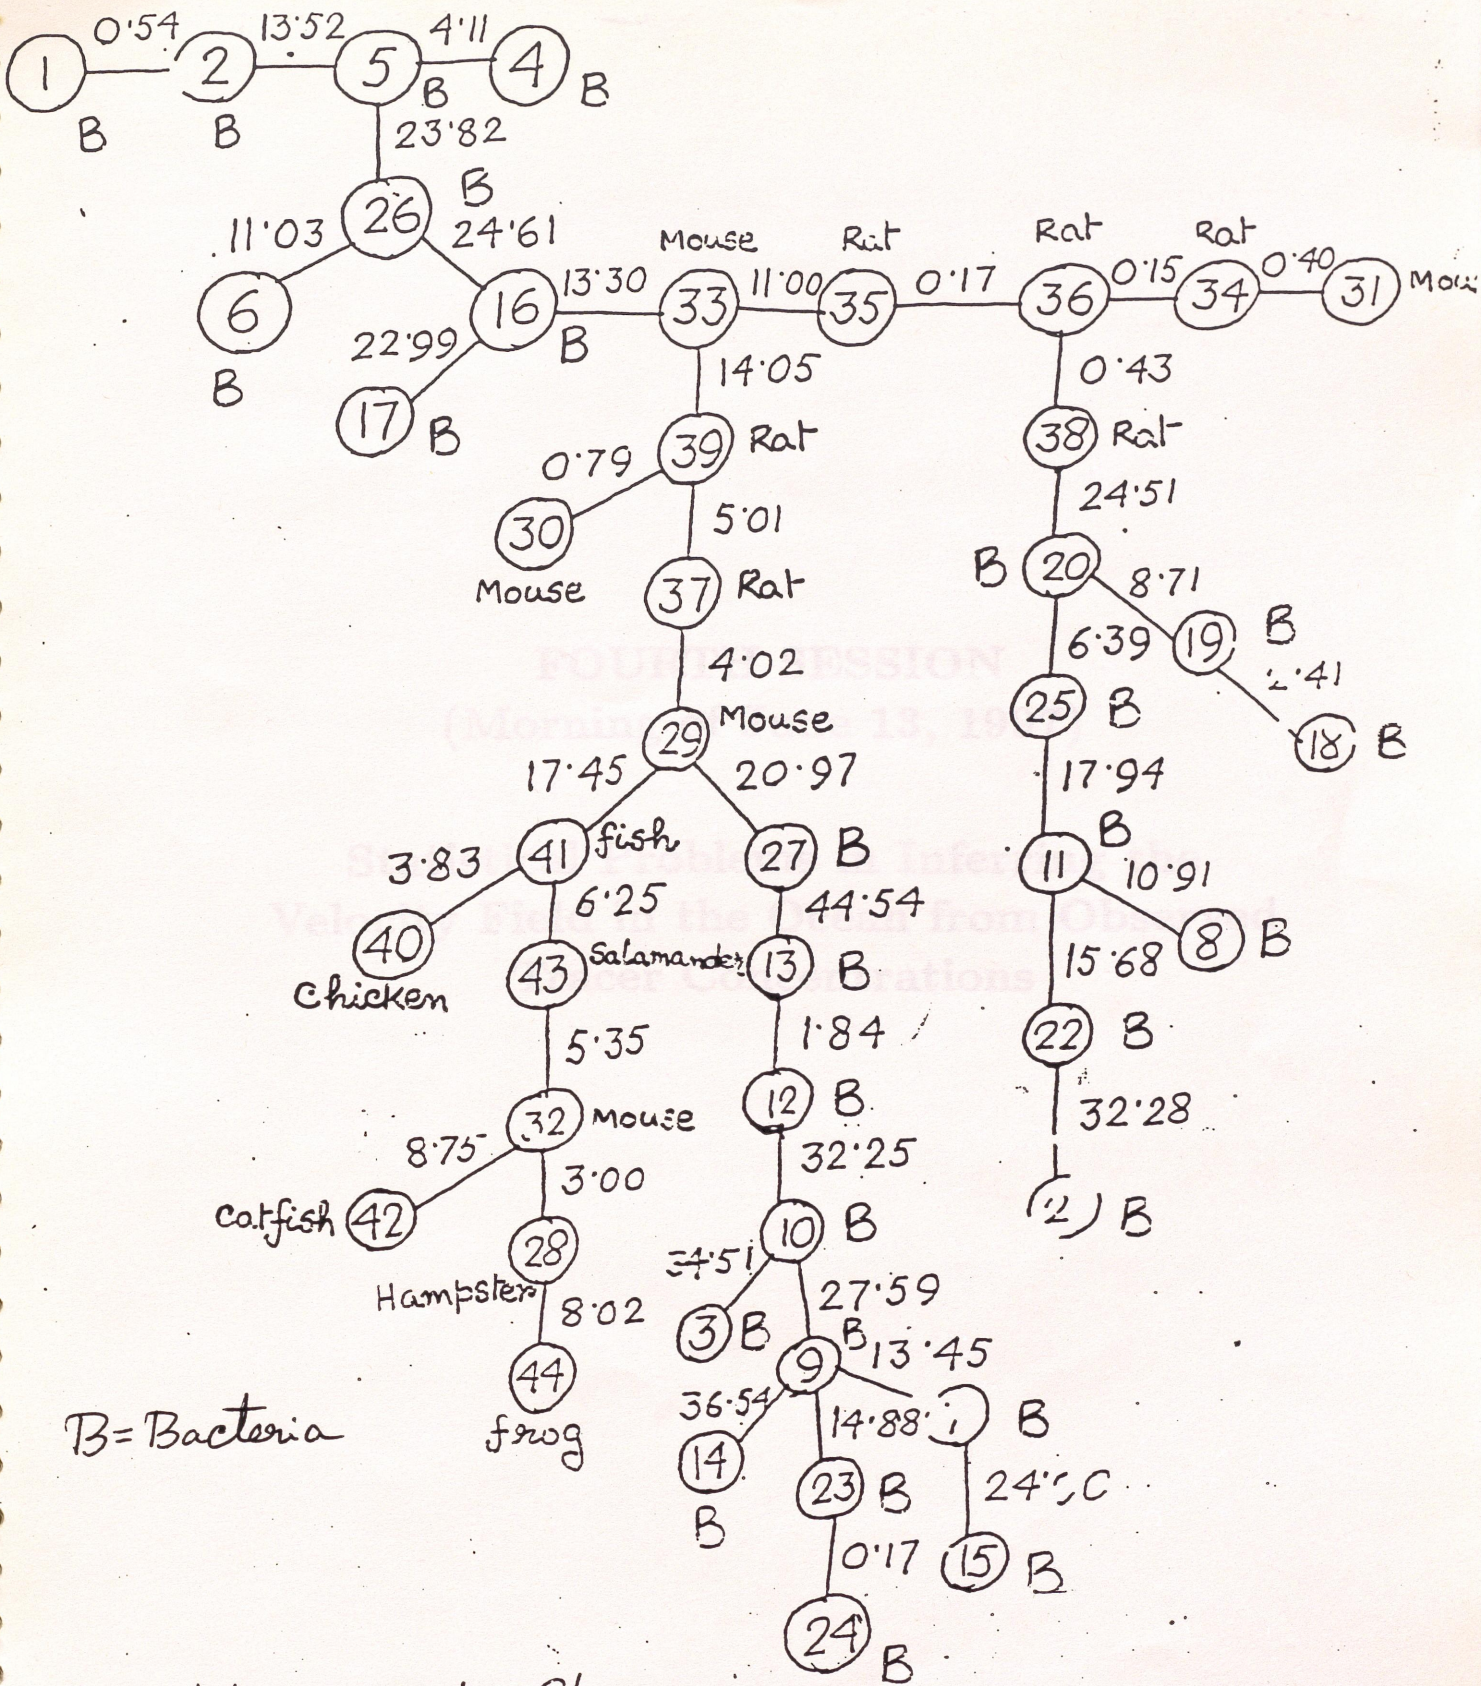 0·54 13·52 4·11
1 2 5 4
B B B B
23·82
26 B
11·03 24·61
6 B
16 B
22·99
17 B
13·30
Mouse
33
11·00
Rat
35
0·17
Rat
36
0·15
Rat
34
0·40
31
14·05
39 Rat
0·79
30
Mouse
5·01
37 Rat
4·02
29 Mouse
17·45 20·97
41 fish
3·83
40
Chicken
6·25
43 Salamander
5·35
32 Mouse
8·75
Catfish 42
3·00
28
Hampster
8·02
44
frog
27 B
44·54
13 B
1·84
12 B
32·25
10 B
3 B
27·59
9 B
13·45
36·54
14
B
14·88
23 B
0·17
24 B
B
15 B
0·43
38 Rat
24·51
B 20
8·71
19 B
18 B
6·39
25 B
17·94
11 B
10·91
8 B
15·68
22 B
32·28
B
B = Bacteria
FOURTH SESSION